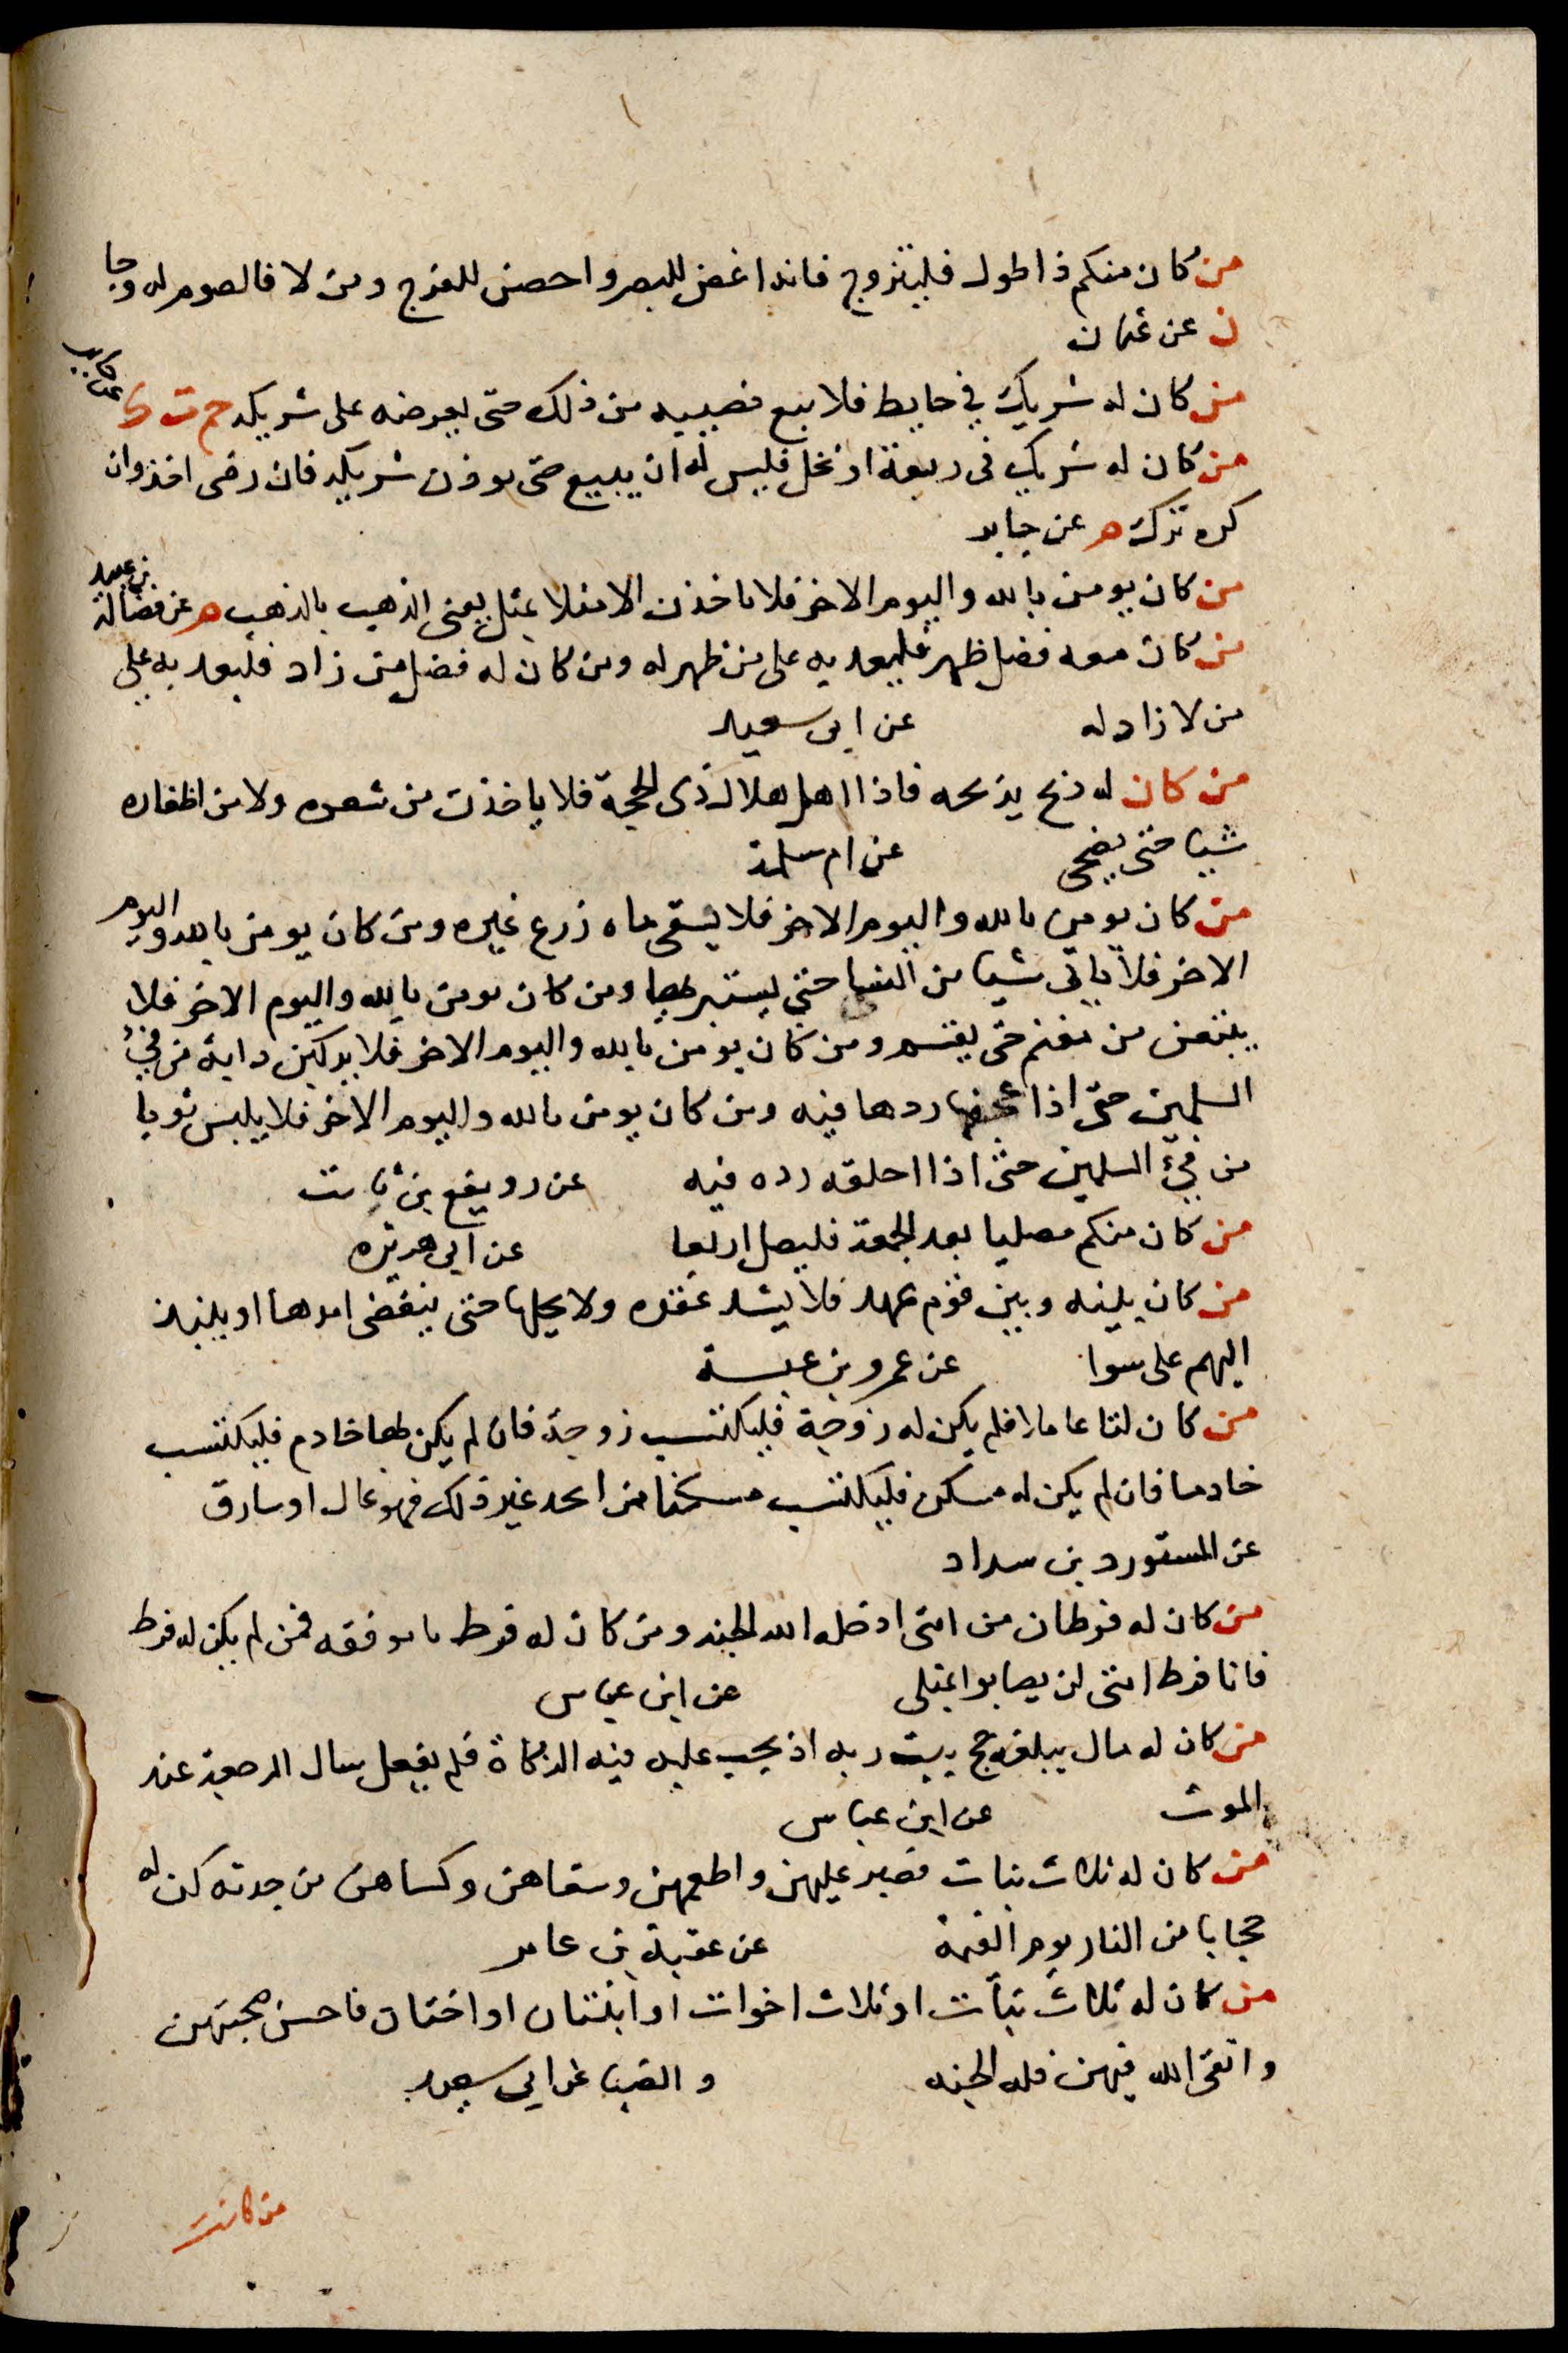 من كان منكم ذا طول فليتزوج فانه اغض للبصر واحصن للفرج ومن لا فالصوم له وجا
ن عن عثمان
من كان له شريك في حايط فلا يبع نصيبه من ذلك حتى يعرضه على شريكه حم ت ك عن جابر
من كان له شريك في ربعة او نخل فليس له ان يبيع حتى يوذن شريكه فان رضى اخذ وان
كره ترك م عن جابر
من كان يومن بالله واليوم الاخر فلا ياخذن الا مثلا بمثل يعنى الذهب بالذهب م عن فضالة بن عبيد
من كان معه فضل ظهر فليعد به على من ظهر له ومن كان له فضل من زاد فليعد به على
من لا زاد له عن ابى سعيد
من كان له ذبح يذبحه فاذا اهل هلال ذى الحجة فلا ياخذن من شعره ولا من اظفاره
شيا حتى يضحى عن ام سلمة
من كان يومن بالله واليوم الاخر فلا يسقى ماه زرع غيره ومن كان يومن بالله واليوم
الاخر فلا ياتى شيا من السبا حتى يستبريها ومن كان يومن بالله واليوم الاخر فلا
يبتعن من مغنم حتى يقسم ومن كان يومن بالله واليوم الاخر فلا يركبن دابة من فئ
المسلمين حتى اذا اعجفها ردها فيه ومن كان يومن بالله واليوم الاخر فلا يلبس ثوبا
من فئ المسلمين حتى اذا اخلقه رده فيه عن رويفع بن ثابت
من كان منكم مصليا بعد الجمعة فليصل اربعا عن ابى هريره
من كان بينه وبين قوم عهد فلا يشد عقده ولا يحلها حتى ينقضى امدها او ينبذ
اليهم على سوا عن عمرو بن عبسة
من كان لنا عاملا فلم يكن له زوجة فليكتسب زوجة فان لم يكن لها خادم فليكتسب
خادما فان لم يكن له مسكن فليكتسب مسكنا من اتخذ غير ذلك فهو غال او سارق
عن المستورد بن سداد
من كان له فرطان من امتى ادخله الله الجنه ومن كان له فرط يا موفقه فمن لم يكن له فرط
فانا فرط امتى لن يصابوا بمثلى عن ابن عباس
من كان له مال يبلغه حج بيت ربه او يجب عليه فيه الزكاة فلم يفعل سال الرجعة عند
الموت عن ابن عباس
من كان له ثلاث بنات فصبر عليهن واطعمهن وسقاهن وكساهن من جدته كن له
حجابا من النار يوم القيمة عن عقبة بن عامر
من كان له ثلاث بنات او ثلاث اخوات او ابنتان او اختان فاحسن صحبتهن
واتقى الله فيهن فله الجنه والضيا عن ابى سعيد
من كانت